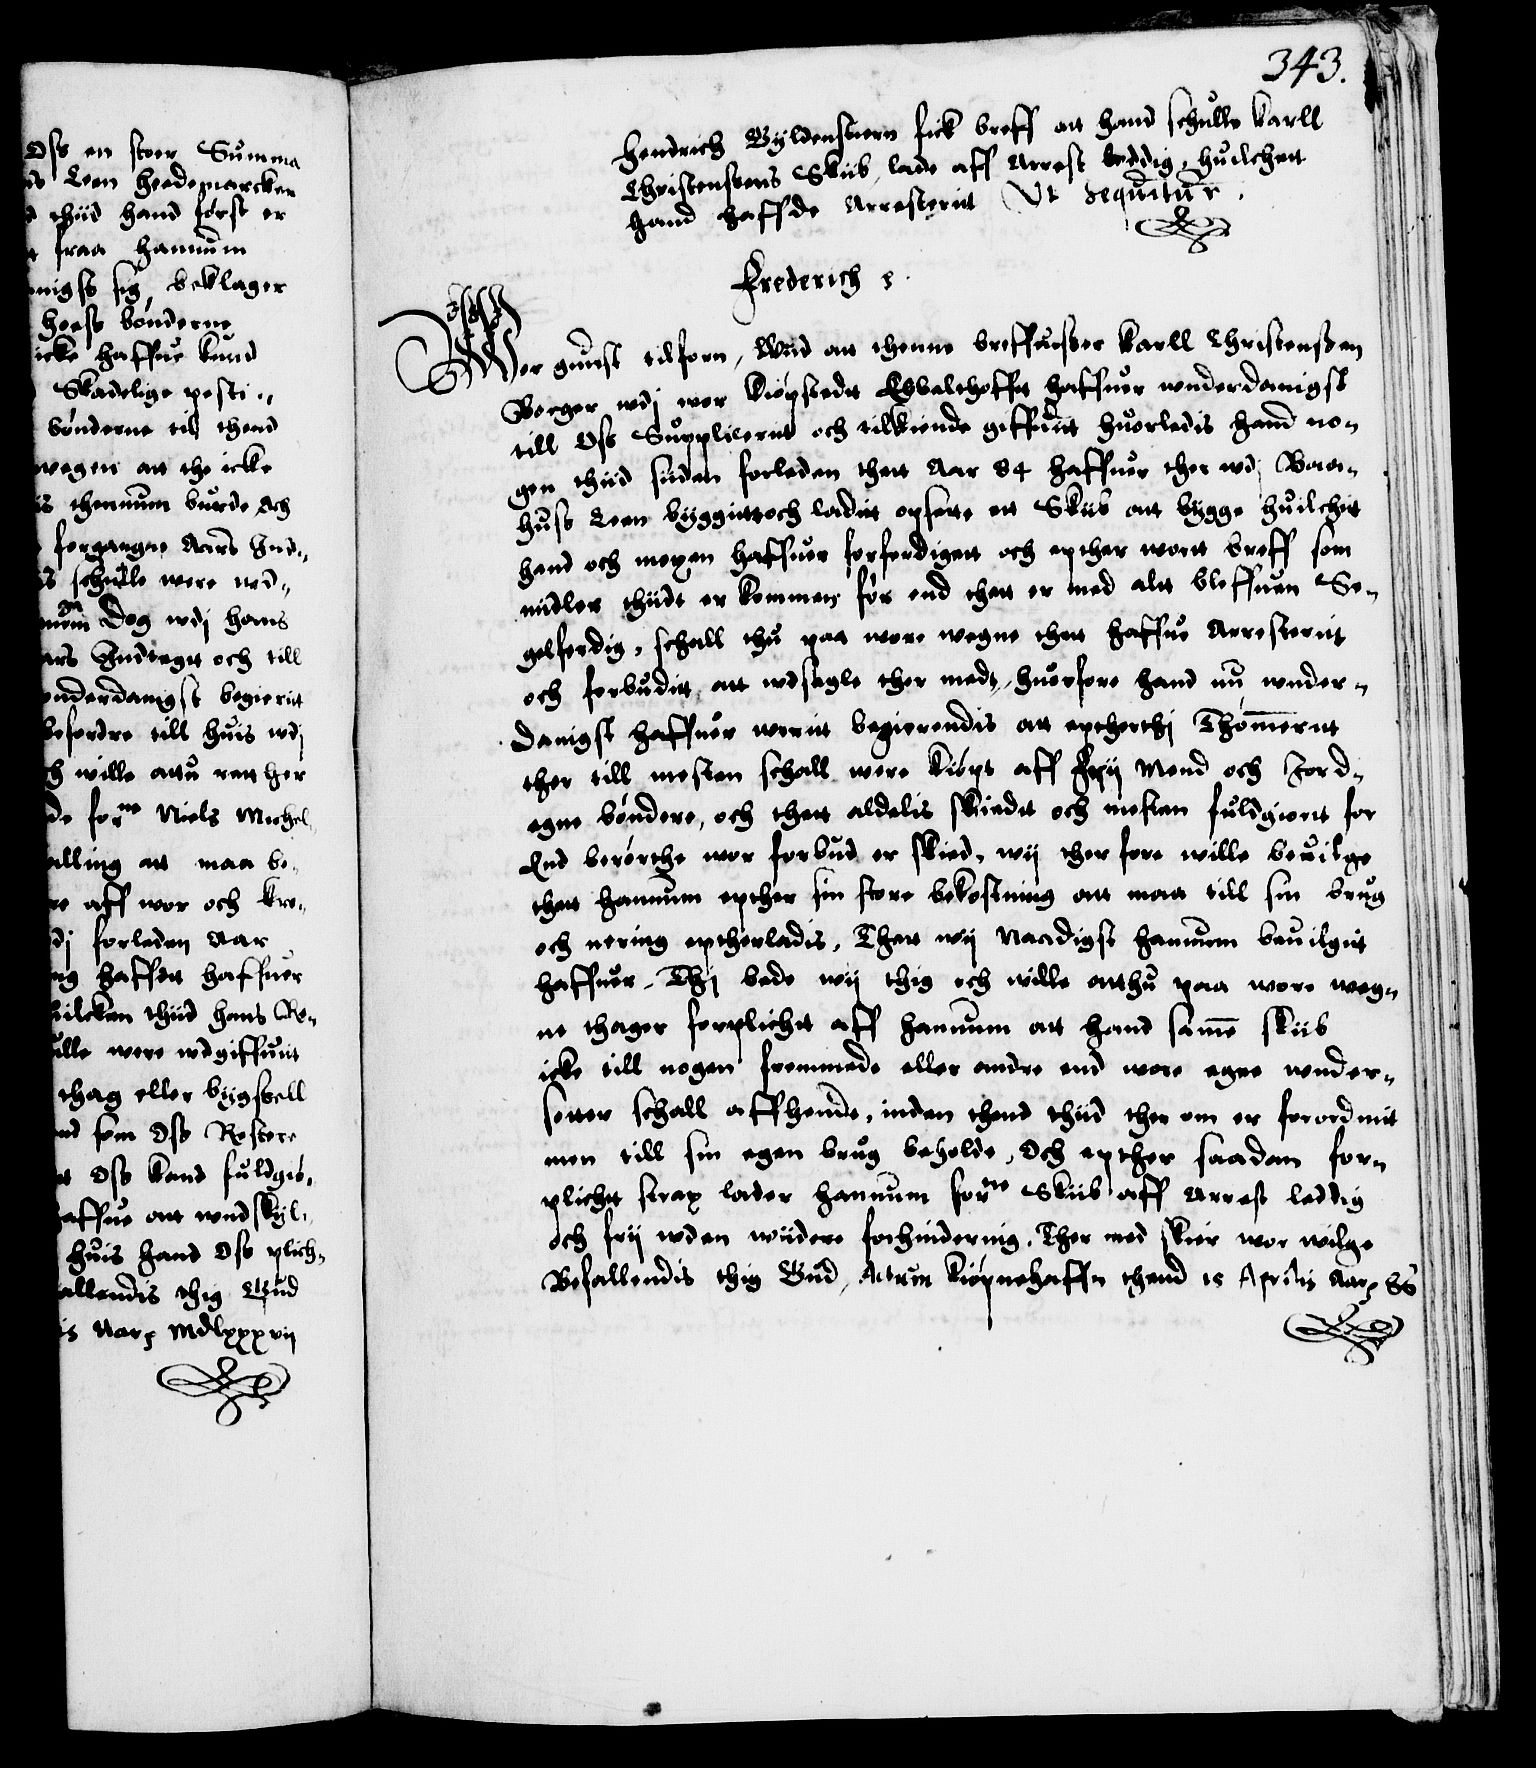 Oss en stoer Summa
Leen Heedemarcken
thiid hand først er
fraa hannum
nigst sig beklager
Hoess bønderne
icke haffue kund
Skadelige pesti„
bønderne till thend
wegen att the icke
thennum burde Och
forgangne Aars Ind„
schulle were wd„
Dog wdj hans
Indtegtt och till
underdanigst begierit
befordre till huis wdj
wille attu rett her
forne Niels Michel„
att maa be„
aff wor och Kro„
forleden Aar
hafftt haffuer
huilcken thiid hans Re„
were wdgiffuitt
thag eller bygsell
som Oss Restere
Oss kand fuldgiø„
haffue att wndskyl„
huis hand Oss plich„
Befallendis thig Gud
Aar MDlxxxvij
343.
Hendrich Gyldenstiern fick breff att hand schulle Karll
Christenssens Skiib, lade aff Arrest leddig, huilchett
hand haffde Arresteritt Vt sequitur.
Frederich 2.
Wor gunst tilforn, Wiid att thenne breffuisser Karll Christenssen
Borger wdj wor Kiøpstedt Ebbelthofft haffuer wnderdanigst
till Oss Supplicerit och tilkiende giffuitt huorledis hand no„
gen thiid siiden forleden thett Aar 84 haffuer ther wdj Baa„
huss Leen byggitt och ladit opsette ett Skiib att bygge huilchett
hand och mexen haffuer forferdigett och epther wortt breff som
midler thiidt er kommen, før end thett er med alt bleffuen Se„
gelferdig, schall thu paa wore wegne thett haffue Arresteritt
och forbudit att wdsegle ther medt, huorfore hand nu wnder„
danigst haffuer werit begierendis att eptherthj Thømmerit
ther till mesten schall were kiøpt aff Frij Mend och Jord„
egne bøndere, och thett aldelis skiedtt och mesten fuldgiortt før
End berørthe wor forbud er skied, wij therfore wille beuilge
thett hannum epther sin store bekostning att maa till sin brug
och nering eptherladis, Thett wij Naadigst hannum beuilgit
haffuer. Thj bede wij thig och wille atthu paa wore weg„
ne thager forplicht aff hannum att hand samme skiib
icke till nogen fremmede eller andre end wore egne wnder„
sotter schall affhende, inden thend thiid ther om er forordnit
men till sin egen brug beholde, Och epther saadan for„
plicht strax lader hannum forne Skiib aff Arrest leddig
och frij wden wiidere forhindernig. Ther med skier wor wilge
Befallendis thig Gud, Actum Kiøpnehaffn thend 15 Aprilis Aar 86